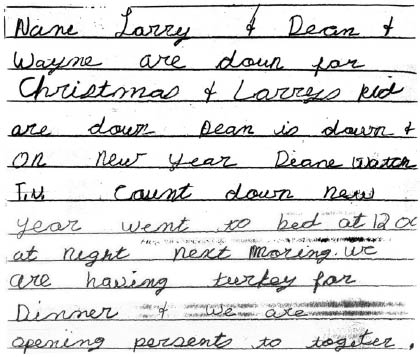 Nane Larry & Dean &
Wayne are down for
Christmas & Larrys kid
are down Dean is down &
on new year Deane watch
T.V. count down new
year went to bed at 12 oc
at night next moring. we
are having turkey for
Dinner & we are
opening persents to togiter.